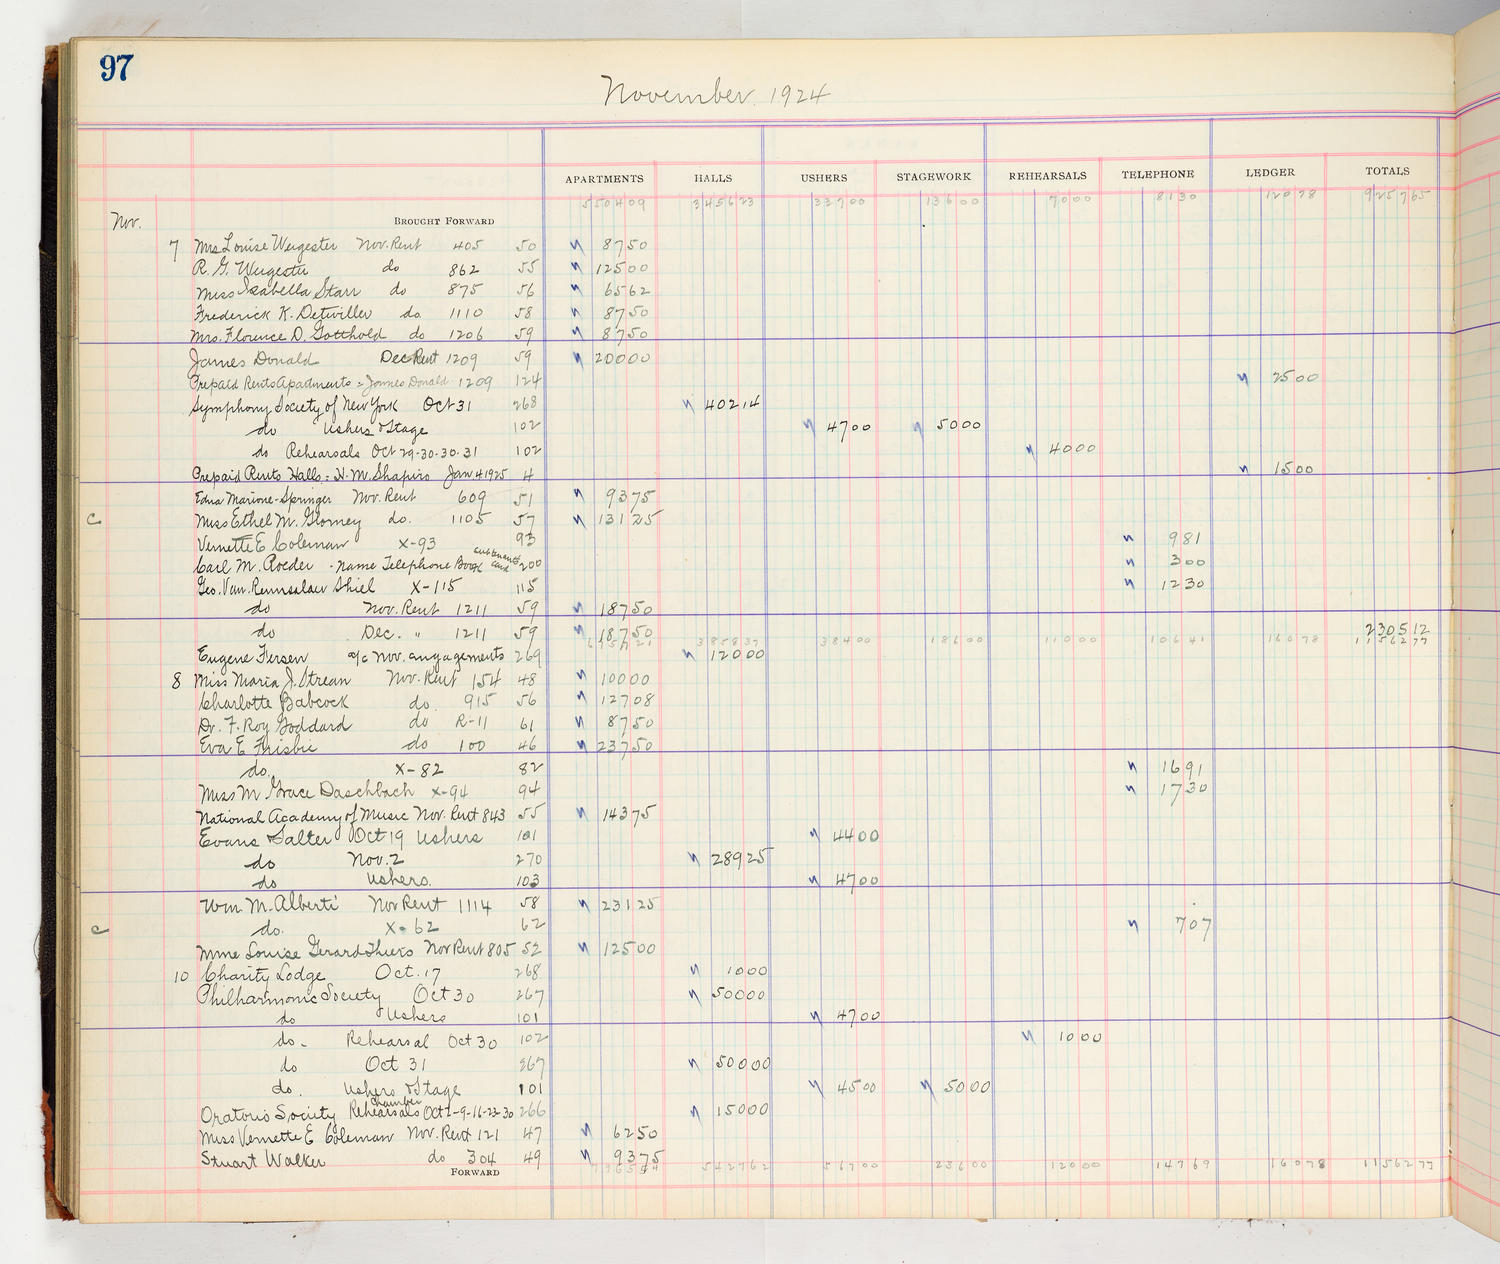 97
November 1924
APARTMENTS HALLS USHERS STAGEWORK REHEARSALS TELEPHONE LEDGER TOTALS
550409 345623 33700 13600 7000 8130 12078 925765
Nov. BROUGHT FORWARD
7 Mrs Louise Wergester Nov. Rent 405 50 8750
R. G. Wergester do 862 55 12500
Miss Isabella Starr do 875 56 6562
Frederick K. Detwiller do. 1110 58 8750
Mrs. Florence D. Gotthold do 1206 59 8750
James Donald Dec Rent 1209 59 20000
Prepaid Rents Apartments = James Donald 1209 124 2500
Symphony Society of New York Oct 31 268 40214
do Ushers & Stage 102 4700 5000
do Rehearsals Oct 29-30-30-31 102 4000
Prepaid Rents Halls = H. M. Shapiro Jan 4 1925 4 1500
Edna Marione-Springer Nov. Rent 609 51 9375
C Miss Ethel M. Glomey do. 1105 57 13125
Vernette E Coleman X-93 93 981
Carl M. Roeder - name Telephone Book and 200 300
Geo. Van Rensselaer Shiel X-115 115 1230
do Nov. Rent 1211 59 18750
do Dec. " 1211 59 18750 230512
385837 38400 18600 11000 10641 16078 1156277
Eugene Fersen a/c Nov. engagements 269 12000
8 Miss Maria J. Strean Nov. Rent 154 48 10000
Charlotte Babcock do. 915 56 12708
Dr. F. Roy Goddard do R-11 61 8750
Eva E Frisbie do 100 46 23750
do. X-82 82 1691
Miss M. Grace Daschbach X-94 94 1730
National Academy of Music Nov. Rent 843 55 14375
Evans & Salter Oct 19 Ushers 101 4400
do Nov. 2 270 28925
do Ushers. 103 4700
Wm M. Alberti Nov Rent 1114 58 23125
C do. X-62 62 707
Mme Louise Gerard Thiers Nov Rent 805 52 12500
10 Charity Lodge Oct. 17 268 1000
Philharmonic Society Oct 30 267 50000
do Ushers 101 4700
do - Rehearsal Oct 30 102 1000
do Oct 31 267 50000
do. Ushers & Stage 101 4500 5000
Oratorio Society Chamber Rehearsals Oct 2-9-16-23-30 266 15000
Miss Vernette E Coleman Nov. Rent 121 47 6250
Stuart Walker do 304 49 9375
FORWARD 542762 56700 23600 12000 14769 16078 1156277